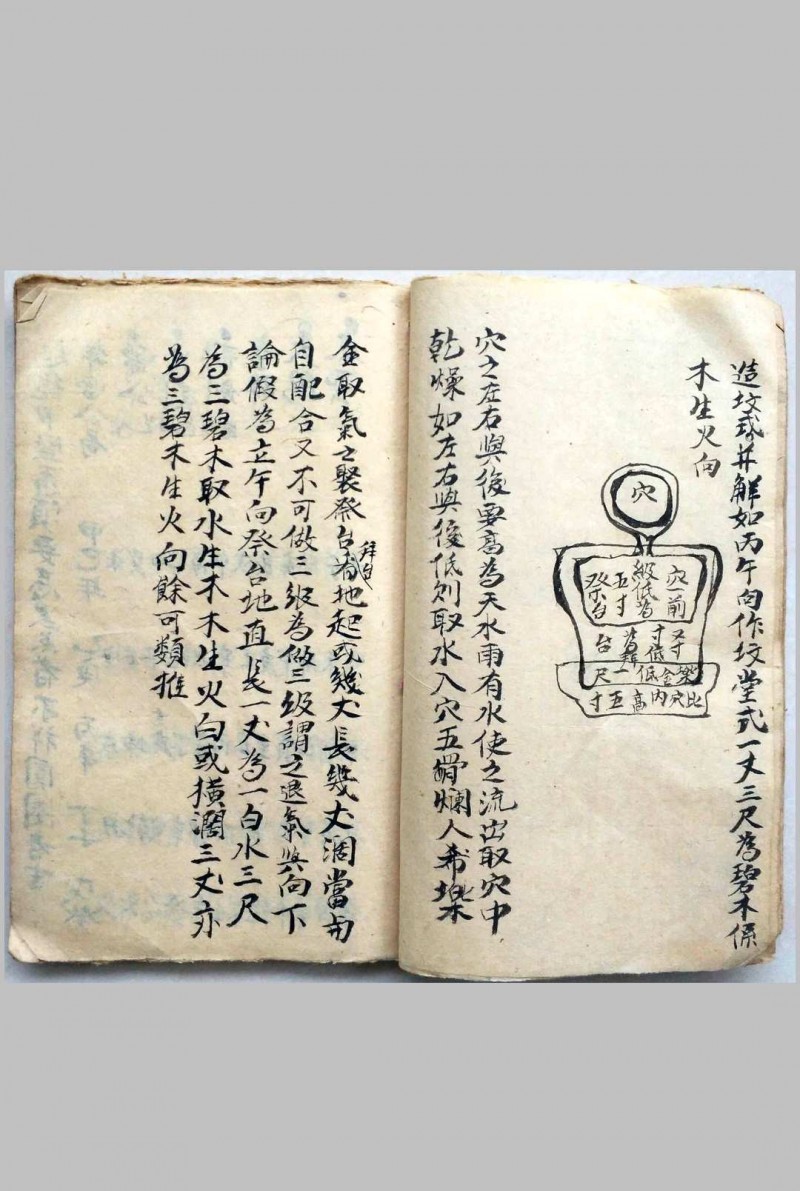 造坟式并解如丙午向作坟堂式一丈三尺為碧木係
木生火向
穴
穴前一
級低為
五寸
祭台
又
寸低
為拜
台
欒金低一尺
比穴内高五寸
穴之左右與後要高為天水雨有水使之流出取穴中
乾燥如左右與後低則取水入穴五骨爛人欒
金取氣之聚祭台拜台有地起或幾丈長幾丈濶當與
自配合又不可做三級為做三級謂之退氣與向下
論假為立午向祭台地直長一丈為一白水三尺
為三碧木取水生木木生火向或横濶三丈亦
為三碧木生火向餘可類推